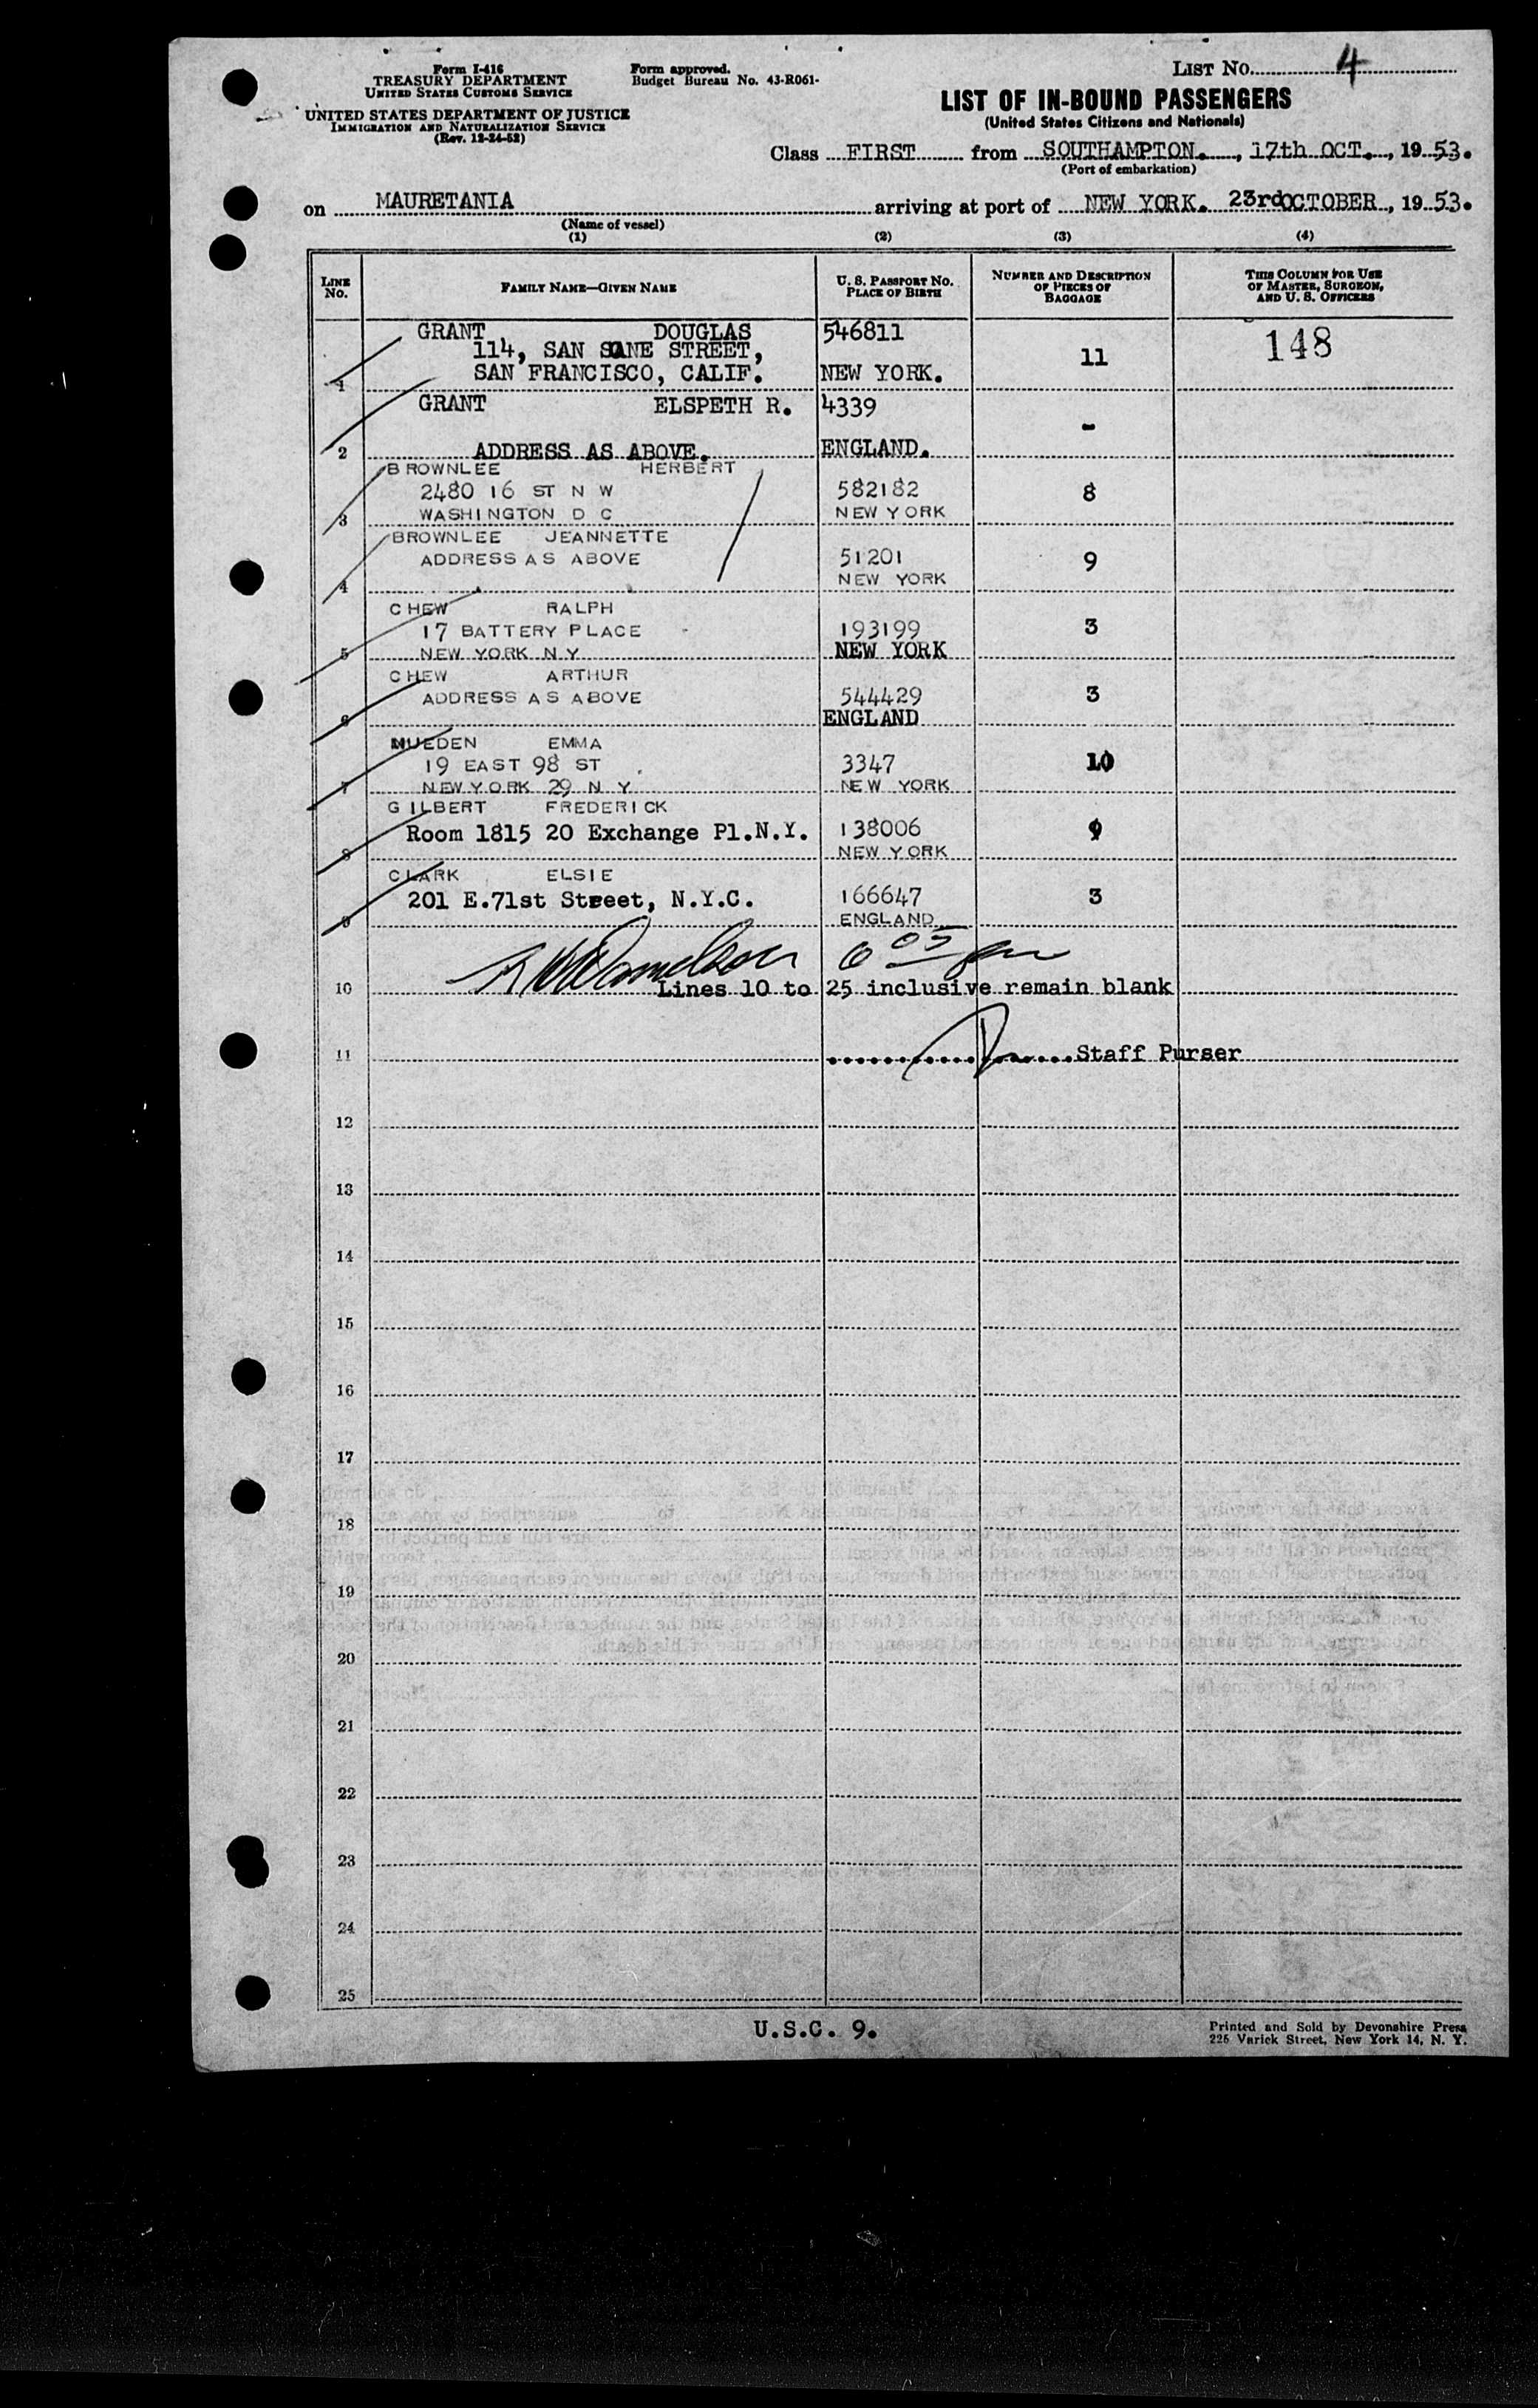 Form I-416
TREASURY DEPARTMENT
UNITED STATES CUSTOMS SERVICE
UNITED STATES DEPARTMENT OF JUSTICE
IMMIGRATION AND NATURALIZATION SERVICE
(Rev. 12-24-52)
Form approved.
Budget Bureau No. 43-R061-
LIST No. 4
LIST OF IN-BOUND PASSENGERS
(United States Citizens and Nationals)
Class FIRST from SOUTHAMPTON., 17th OCT., 19 53.
(Port of embarkation)
on MAURETANIA arriving at port of NEW YORK. 23rd OCTOBER, 19 53.
(Name of vessel)
(1) (2) (3) (4)
LINE No. FAMILY NAME—GIVEN NAME U. S. PASSPORT NO. PLACE OF BIRTH NUMBER AND DESCRIPTION OF PIECES OF BAGGAGE THIS COLUMN FOR USE OF MASTER, SURGEON, AND U. S. OFFICERS
GRANT DOUGLAS 546811 148
114, SAN STREET, 11
1 SAN FRANCISCO, CALIF. NEW YORK.
GRANT ELSPETH R. 4339 -
2 ADDRESS AS ABOVE. ENGLAND.
BROWNLEE HERBERT
2480 16 ST N W 582182 8
3 WASHINGTON D C NEW YORK
BROWNLEE JEANNETTE
ADDRESS AS ABOVE 51201 9
4 NEW YORK
CHEW RALPH
17 BATTERY PLACE 193199 3
5 NEW YORK N Y NEW YORK
CHEW ARTHUR
ADDRESS AS ABOVE 544429 3
6 ENGLAND
MUEDEN EMMA
19 EAST 98 ST 3347 10
7 NEW YORK 29 N Y NEW YORK
GILBERT FREDERICK
Room 1815 20 Exchange Pl.N.Y. 138006 9
8 NEW YORK
CLARK ELSIE
201 E.71st Street, N.Y.C. 166647 3
9 ENGLAND
6 05 pm
10 Lines 10 to 25 inclusive remain blank
11 Staff Purser
12
13
14
15
16
17
18
19
20
21
22
23
24
25
U.S.C. 9.
Printed and Sold by Devonshire Press
225 Varick Street, New York 14, N. Y.